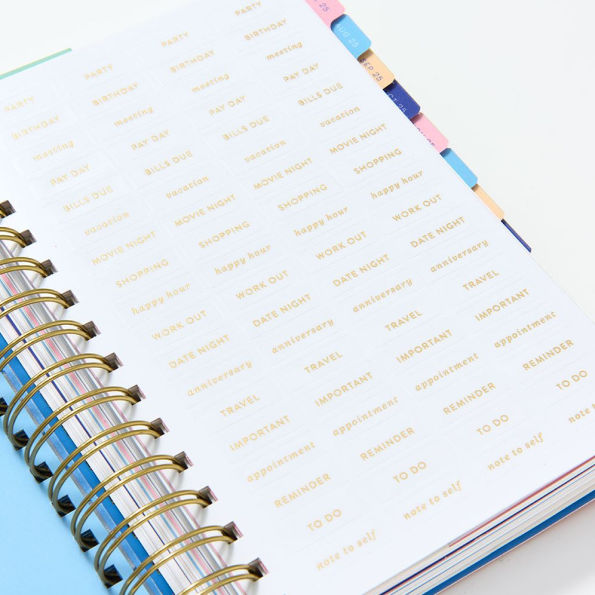 PARTY PARTY PARTY PARTY
BIRTHDAY BIRTHDAY BIRTHDAY BIRTHDAY
meeting meeting meeting meeting
PAY DAY PAY DAY PAY DAY PAY DAY
BILLS DUE BILLS DUE BILLS DUE BILLS DUE
vacation vacation vacation vacation
MOVIE NIGHT MOVIE NIGHT MOVIE NIGHT MOVIE NIGHT
SHOPPING SHOPPING SHOPPING SHOPPING
happy hour happy hour happy hour happy hour
WORK OUT WORK OUT WORK OUT WORK OUT
DATE NIGHT DATE NIGHT DATE NIGHT DATE NIGHT
anniversary anniversary anniversary anniversary
TRAVEL TRAVEL TRAVEL TRAVEL
IMPORTANT IMPORTANT IMPORTANT IMPORTANT
appointment appointment appointment appointment
REMINDER REMINDER REMINDER REMINDER
TO DO TO DO TO DO TO DO
note to self note to self note to self note to
AUG 25
SEP 25